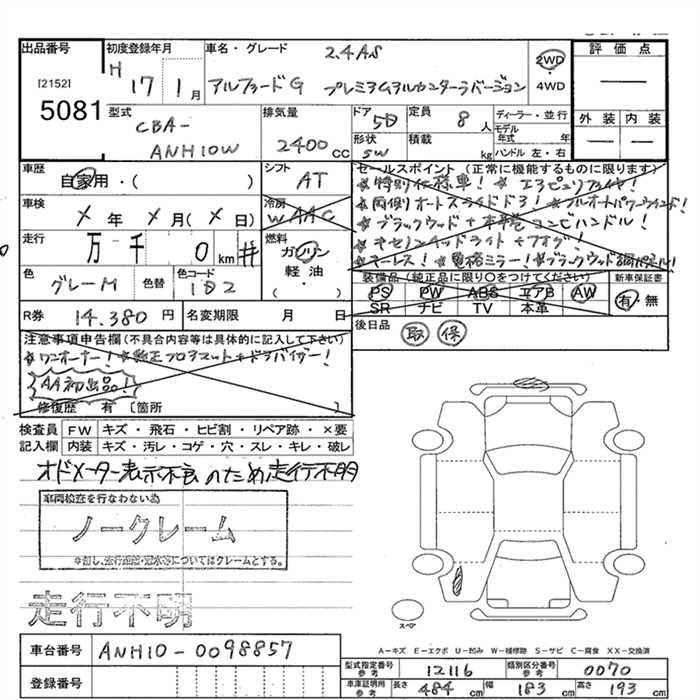 出品番号
[2152]
5081
初度登録年月
H 17 1月
車名・グレード
2.4AS
アルファードG プレミアムアルカンターラバージョン
2WD
4WD
評価点
外装 内装
型式
CBA-
ANH10W
排気量
2400cc
ドア 5D
形状 SW
定員 8人
積載 kg
ディーラー・並行
モデル年式 年
ハンドル 左・右
車歴
自家用・( )
シフト
AT
冷房
WAAC
車検
×年 ×月(×日)
走行
万 千 0km #
燃料
ガソリン
軽油・
( )
色
グレーM
色替
色コード
1D2
R券 14,380円
名変期限 月 日
セールスポイント(正常に機能するものに限ります)
☆特別仕様車! ☆エアピュリファイヤ!
☆両側オートスライドドア! ☆フルオートパワーウインド!
☆ブラックウッド+本革コンビハンドル!
☆キセノンヘッドライト+フォグ!
☆キーレス! ☆電格ミラー! ☆ブラックウッド調パネル!
装備品(純正品に限り○をつけてください)
PS PW ABS エアB AW
SR ナビ TV 本革
新車保証書
有・無
後日品 取 保
注意事項申告欄(不具合内容等は具体的に記入して下さい)
☆ワンオーナー! ☆純正フロアマット+ドアバイザー!
AA初出品!
修復歴 有 〔箇所 〕
検査員記入欄
FW キズ・飛石・ヒビ割・リペア跡・×要
内装 キズ・汚レ・コゲ・穴・スレ・キレ・破レ
オドメーター表示不良のため走行不明
車両検査を行なわない為
ノークレーム
※但し、走行距離・冠水等についてはクレームとする。
走行不明
スペア
A−キズ E−エクボ U−凹み W−補修跡 S−サビ C−腐食 XX−交換済
車台番号 ANH10-0098857
登録番号
型式指定番号 参考 12116
類別区分番号 参考 0070
車庫証明用 参考 長さ 484cm 幅 183cm 高さ 193cm